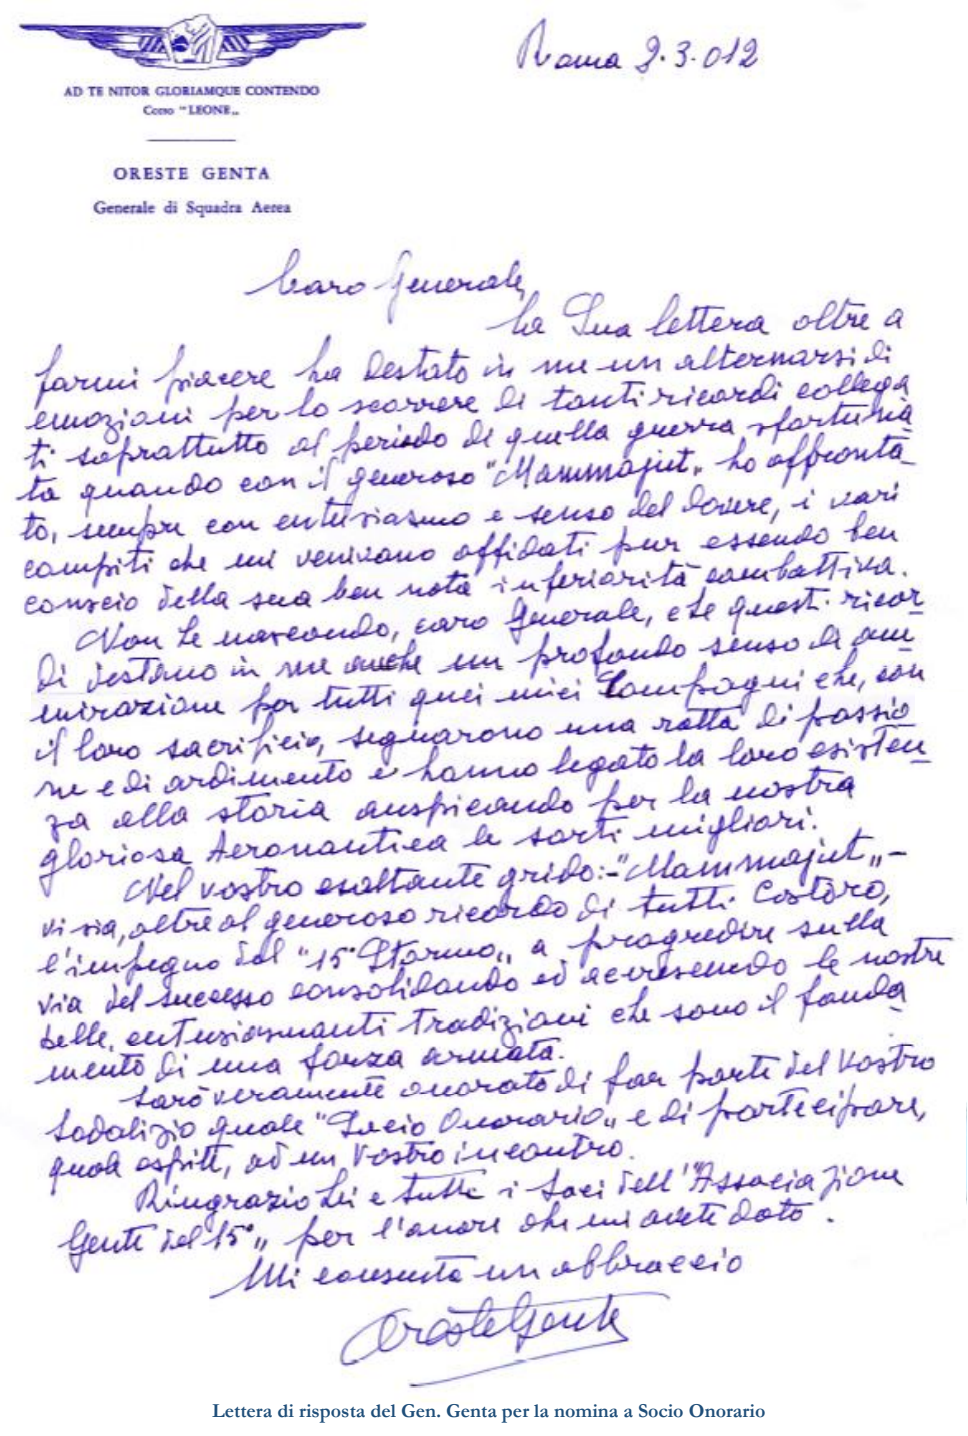 Roma 2.3.012
AD TE NITOR GLORIAMQUE CONTENDO
Corso "LEONE„
ORESTE GENTA
Generale di Squadra Aerea
Caro Generale,
la Sua lettera oltre a
farmi piacere ha destato in me un alternarsi di
emozioni per lo scorrere di tanti ricordi collega
ti soprattutto al periodo di quella guerra sfortuna
ta quando con il generoso "Mammajut„ ho affronta
to, sempre con entusiasmo e senso del dovere, i vari
compiti che mi venivano affidati pur essendo ben
conscio della sua ben nota inferiorità combattiva.
Non Le nascondo, caro Generale, che questi ricor
di destano in me anche un profondo senso di am
mirazione per tutti quei miei Compagni che, con
il loro sacrificio, segnarono una rotta di passio
ne e di ardimento e hanno legato la loro esisten
za alla storia auspicando per la nostra
gloriosa Aeronautica le sorti migliori.
Nel vostro esaltante grido:-"Mammajut„-
vi sia, oltre al generoso ricordo di tutti Costoro,
l'impegno del "15° Stormo„ a progredire sulla
via del successo consolidando ed accrescendo le nostre
belle, entusiasmanti tradizioni che sono il fonda
mento di una forza armata.
Sarò veramente onorato di far parte del Vostro
Sodalizio quale "Socio Onorario„ e di partecipare,
quale ospite, ad un Vostro incontro.
Ringrazio Lei e tutti i Soci dell'"Associazione
Gente del 15°„ per l'onore che mi avete dato.
Mi consenta un abbraccio
Oreste Genta
Lettera di risposta del Gen. Genta per la nomina a Socio Onorario